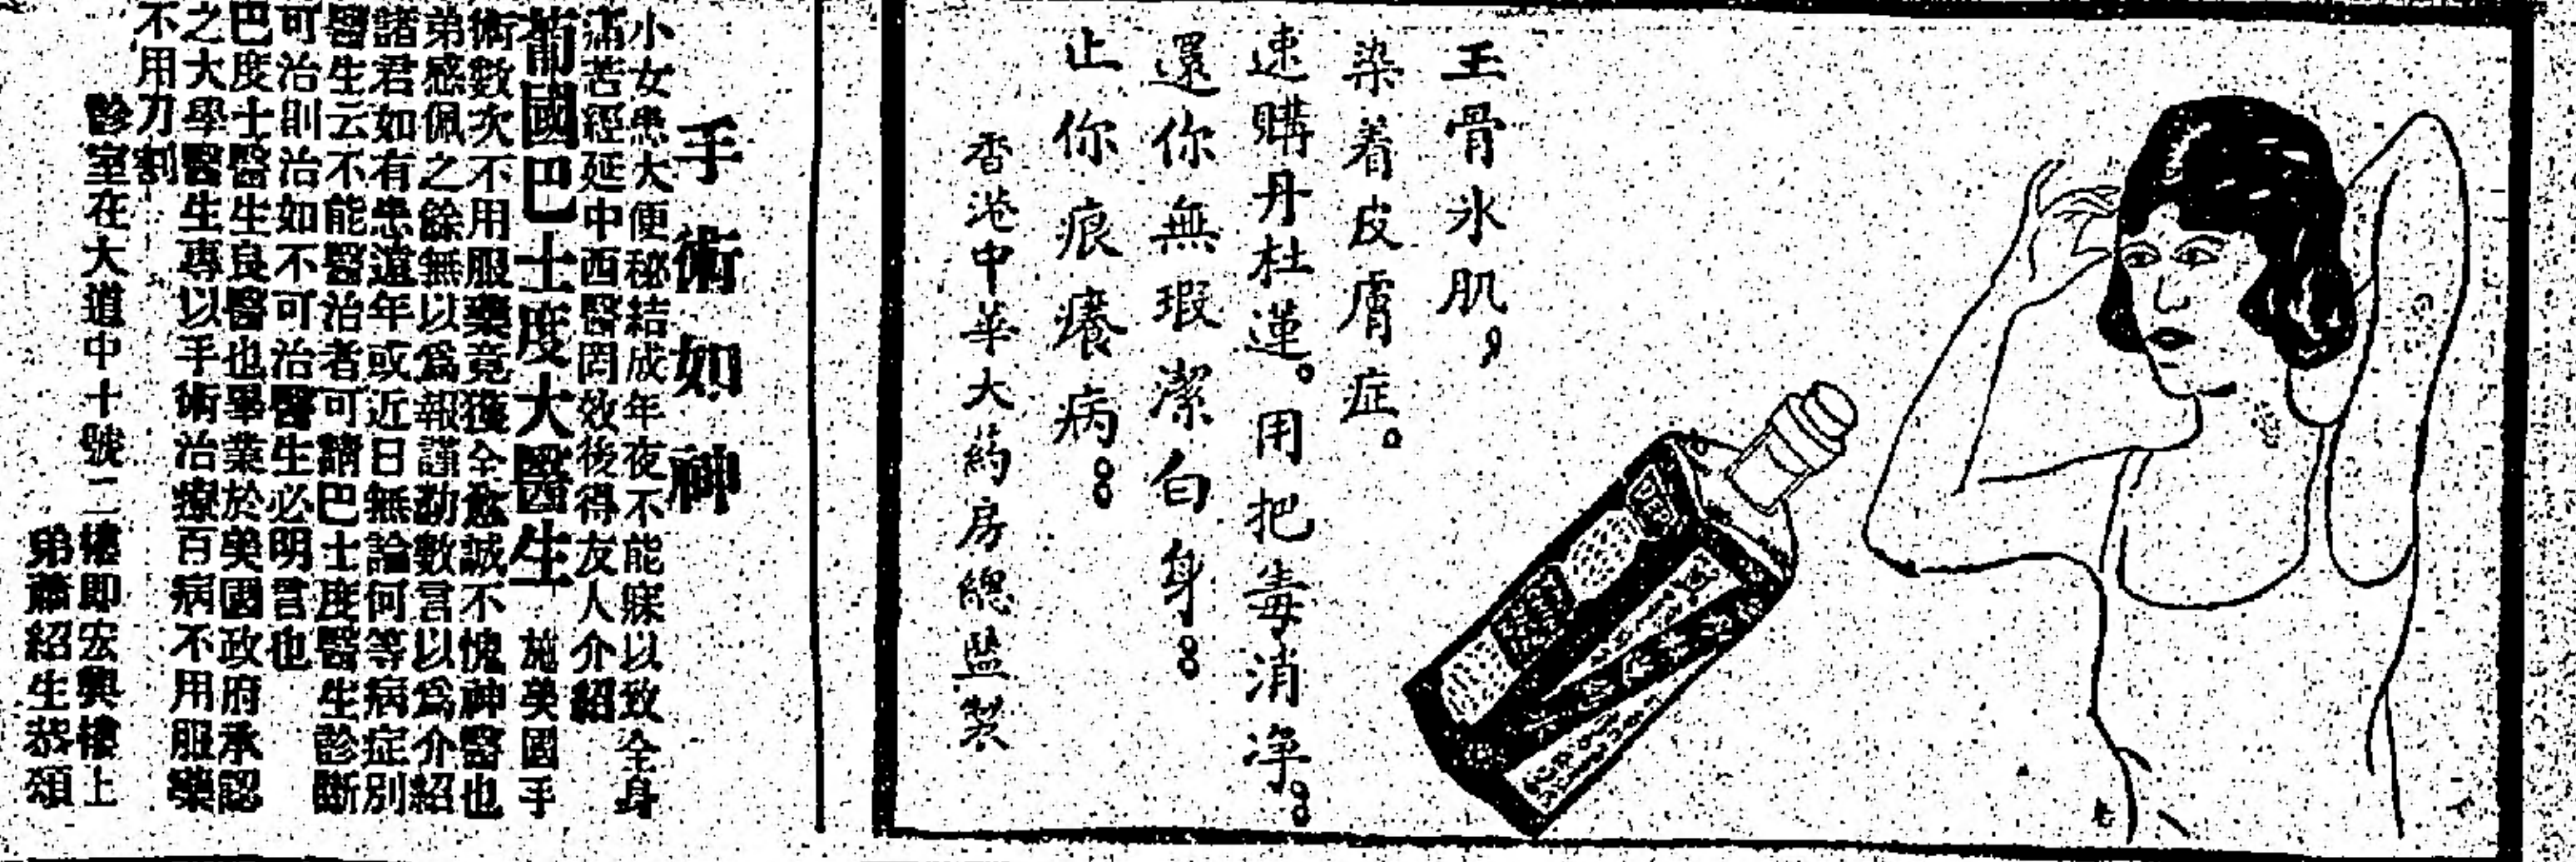 玉骨氷肌，
染着皮膚症。
速購丹杜蓮。用把毒消净。
還你無瑕潔白身：
止你痕癢病：
香港中華大葯房總監製
手術如神
小女患大便秘結成年夜不能寐以致全身
滿苦經延中西醫罔效後得友人介紹
葡國巴士度大醫生 施美國手
術數次不用服藥竟獲全愈誠不愧神醫也
弟感佩之餘無以爲報謹勒數言以爲介紹
諸君如有患遠年或近日無論何等病症別
醫生云不能醫治者可請巴士度醫生診斷
可治則治如不可治醫生必明言也
巴度士醫生良醫也畢業於美國政府承認
之大學醫生專以手術治療百病不用服藥
不用刀割
診室在大道中十號二樓即宏興樓上
弟蕭紹生恭頌